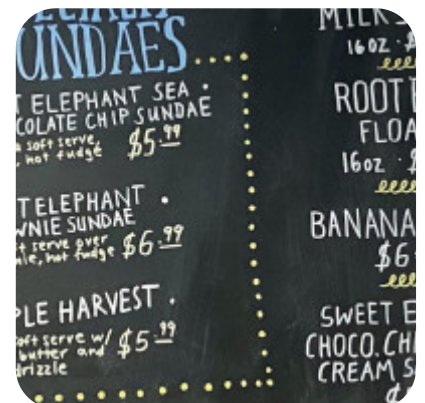 UNDAES
ELEPHANT SEA
COLATE CHIP SUNDAE
soft serve,
hot fudge $5.99
T ELEPHANT
WNIE SUNDAE
t serve over
ie, hot fudge $6.99
PLE HARVEST
oft serve w/
butter and $5.99
drizzle
MILK
16oz
ROOT
FLOA
16oz
BANANA
$6
SWEET E
CHOCO. CHI
CREAM S